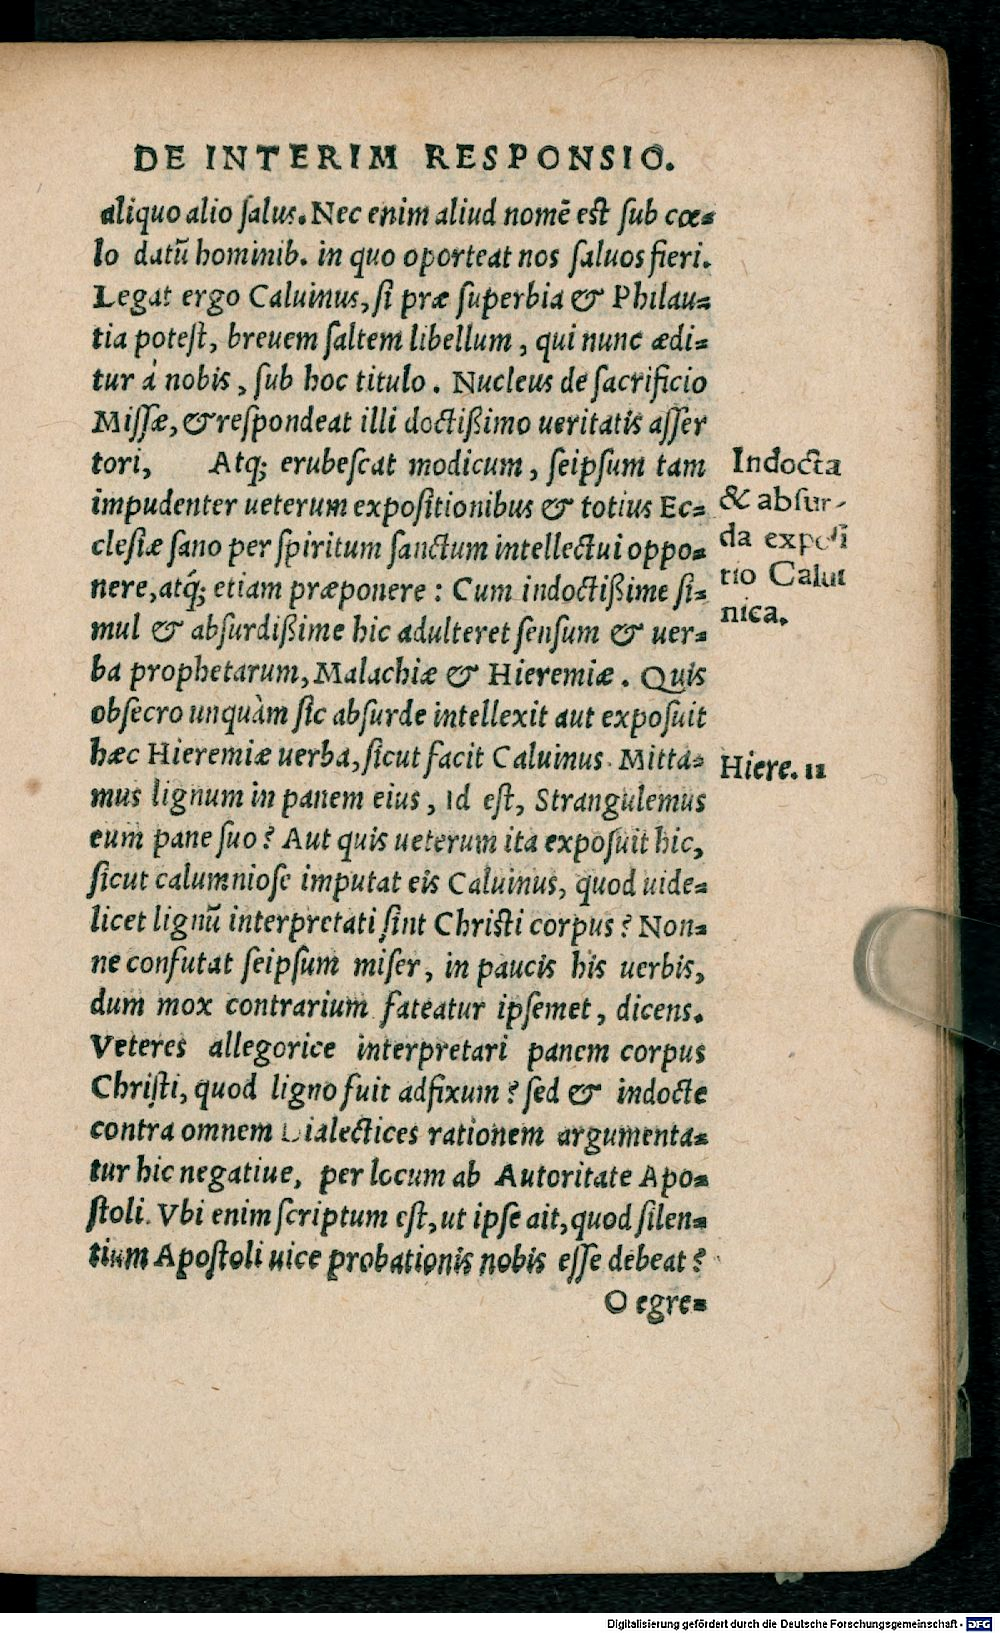 DE INTERIM RESPONSIO.
aliquo alio ſalus. Nec enim aliud nomē est ſub cœ-
lo datū hominib. in quo oporteat nos ſaluos fieri.
Legat ergo Caluinus, ſi præ ſuperbia & Philau-
tia poteſt, breuem ſaltem libellum, qui nunc ædi-
tur á nobis, ſub hoc titulo. Nucleus de ſacrificio
Miſſæ, & reſpondeat illi doctißimo ueritatis aſſer
tori, Atq; erubeſcat modicum, ſeipſum tam
impudenter ueterum expoſitionibus & totius Ec-
cleſiæ ſano per ſpiritum ſanctum intellectui oppo-
nere, atq́; etiam præponere: Cum indoctißime ſi-
mul & abſurdißime hic adulteret ſenſum & uer-
ba prophetarum, Malachiæ & Hieremiæ. Quis
obſecro unquàm ſic abſurde intellexit aut expoſuit
hæc Hieremiæ uerba, ſicut facit Caluinus. Mitta-
mus lignum in panem eius, Id eſt, Strangulemus
eum pane ſuo? Aut quis ueterum ita expoſuit hic,
ſicut calumnioſe imputat eis Caluinus, quod uide-
licet lignū interpretati ſint Chriſti corpus? Non-
ne confutat ſeipſum miſer, in paucis his uerbis,
dum mox contrarium fateatur ipſemet, dicens.
Veteres allegorice interpretari panem corpus
Chriſti, quod ligno fuit adfixum? ſed & indocte
contra omnem Dialectices rationem argumenta-
tur hic negatiue, per locum ab Autoritate Apo-
ſtoli. Vbi enim ſcriptum eſt, ut ipſe ait, quod ſilen-
tium Apoſtoli uice probationis nobis eſſe debeat?
O egre-
Indocta
& abſur-
da expoſi
tio Calui
nica.
Hiere. 11
Digitalisierung gefördert durch die Deutsche Forschungsgemeinschaft - DFG